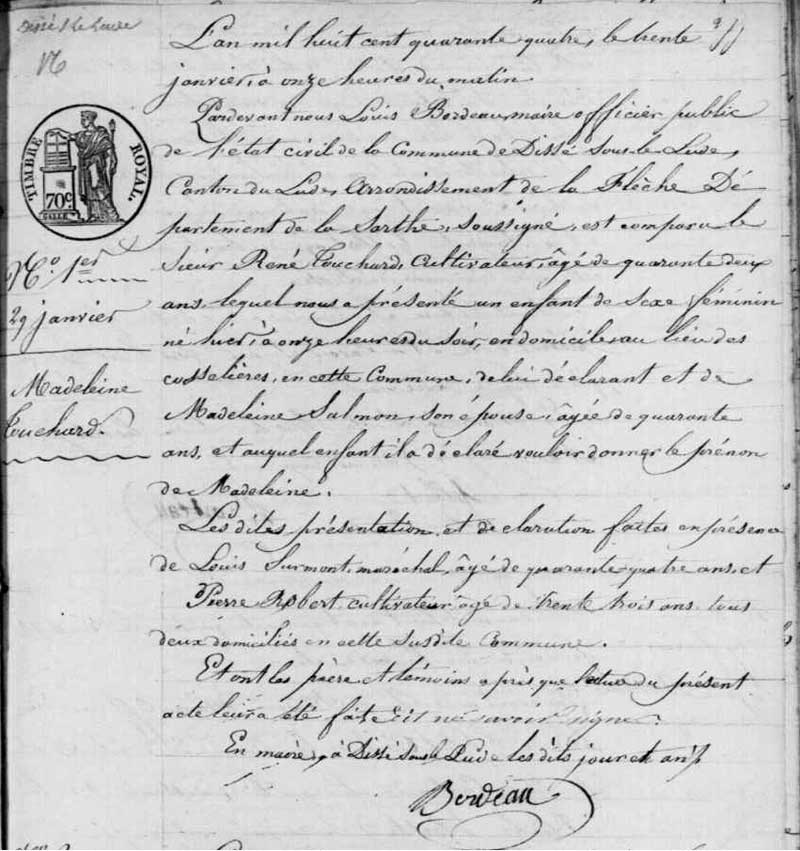 Dissé s/ le Lude
N
TIMBRE ROYAL.
70c
N.o 1er
29 janvier
Madeleine
Touchard.
L'an mil huit cent quarante quatre, le trente
janvier, à onze heures du matin.
Pardevant nous Louis Bordeau, maire officier public
de l'état civil de la Commune de Dissé sous le Lude,
Canton du Lude, Arrondissement de la Flèche Dé
partement de la Sarthe, soussigné, est comparu le
sieur René Touchard, Cultivateur, âgé de quarante deux
ans, lequel nous a présenté un enfant de sexe féminin
né hier, à onze heures du soir, en domicile, au lieu des
cosselières, en cette Commune, de lui déclarant et de
Madeleine Salmon, son épouse, âgée de quarante
ans, et auquel enfant il a déclaré vouloir donner le prénon
de Madeleine.
Les dites présentation, et déclaration faites en présence
de Louis Surmont, maréchal, âgé de quarante quatre ans, et
Pierre Robert cultivateur âgé de trente trois ans tous
deux domiciliés en cette susdite Commune.
Et ont les père et témoins après que lecture du présent
acte leur a été faite dit ne savoir signer.
En mairie, à Dissé sous le Lude les dits jour et an
Bordeau